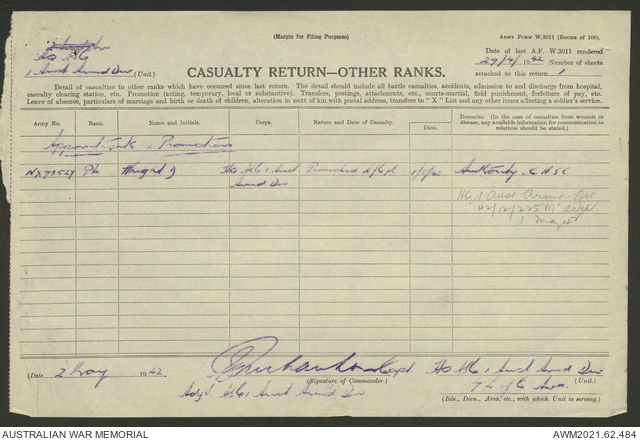 (Margin for Filing Purposes)
ARMY FORM W.3011 (Books of 100).
HQ ASC
1 Aust Armd Div (Unit.)
Date of last A.F. W.3011 rendered
29/4/1942 Number of sheets
attached to this return 1
CASUALTY RETURN—OTHER RANKS.
Detail of casualties to other ranks which have occured since last return. The detail should include all battle casualties, accidents, admission to and discharge from hospital,
casualty clearing station, etc. Promotion (acting, temporary, local or substantive). Transfers, postings, attachments, etc., courts-martial, field punishment, forfeiture of pay, etc.
Leave of absence, particulars of marriage and birth or death of children, alteration in next of kin with postal address, transfers to "X" List and any other items affecting a soldier's service.
Army No. Rank. Name and Initials. Corps. Nature and Date of Casualty. Date. REMARKS. (In the case of casualties from wounds or disease, any available information for communication to relatives should be stated.)
Appointments & Promotions
NX73527 Pte Wright J HQ ASC 1 Aust Promoted A/Cpl 1/5/42 Authority
Armd Div
HQ 1 Aust Armd Div
(Date 2 May 1942 Capt HQ ASC 1 Aust Armd Div (Unit.)
(Signature of Commander.)
Adjt ASC 1 Aust Armd Div
(Bde., Divn., Area, etc., with which Unit is serving.)
AUSTRALIAN WAR MEMORIAL
AWM2021.62.484